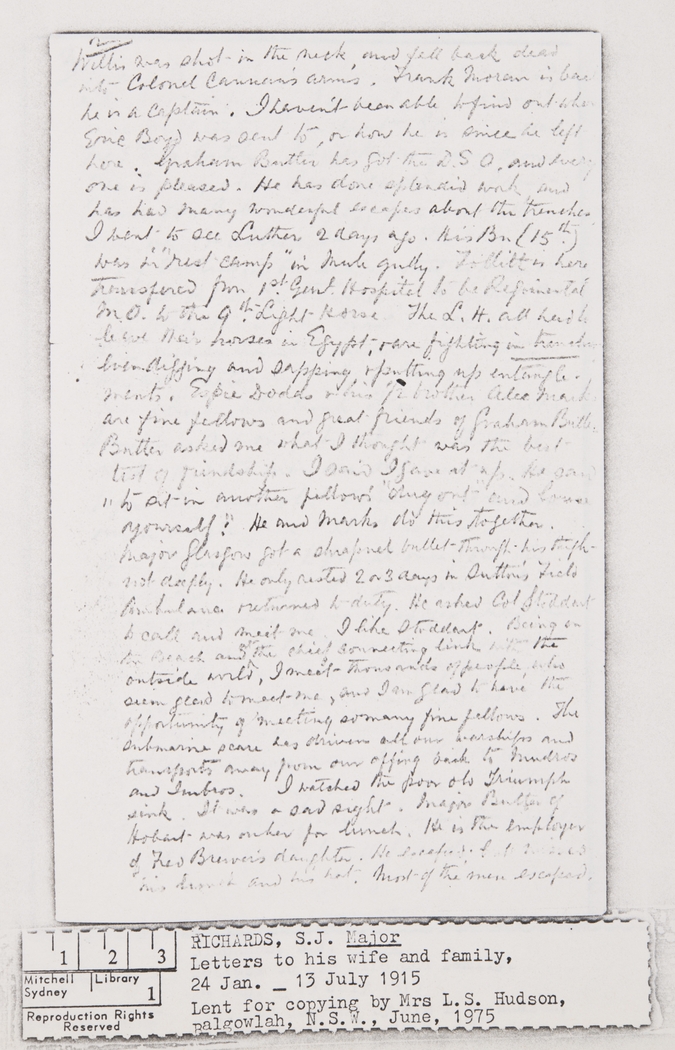 2
Willis was shot in the neck, and fell back dead
into Colonel Cannans arms. Frank Moran is bac
he is a Captain. I haven't been able to find out whe
Eric Boyd was sent to, or how he is since he left
here. Graham Butler has got the D.S.O, and every
one is pleased. He has done splendid work, and
has had many wonderful escapes about the trenches
I went to see Luther 2 days ago. His Bn (15th)
was in "rest camp" in Mule gully. Follitt is here
transfered from 1st Genl. Hospital to be Regimental
M.O. to the 9th Light Horse. The L.H. all had to
leave their horses in Egypt, & are fighting in trenches
even digging and sapping & putting up entangle-
ments. Espie Dodds & his ½ brother Alec Marks
are fine fellows and great friends of Graham Butler
Butler asked me what I thought was the best
test of friendship. I said I gave it up. He said
"to sit in another fellow's "dug out" and louse
yourself"! He and Marks do this together.
Major Glasgow got a shrapnel bullet through his thigh
not deeply. He only rested 2 or 3 days in Sutton's Field
Ambulance & returned to duty. He asked Col Stoddart
to call and meet me. I like Stoddart. Being on
the beach and the chief connecting link with the
outside world, I meet thousands of people, who
seem glad to meet me, and I am glad to have the
opportunity of meeting so many fine fellows. The
submarine scare has driven all our warships and
transports away from our offing back to Mudros
and Imbros. I watched the poor old Triumph
sink. It was a sad sight. Major Butler of
Hobart was on her for lunch. He is the employer
of Fred Brewer's daughter. He escaped, but
his and his hat. Most of the men escaped.
1 2 3
Mitchell Library
Sydney 1
Reproduction Rights
Reserved
RICHARDS, S.J. Major
Letters to his wife and family,
24 Jan. _ 13 July 1915
Lent for copying by Mrs L.S. Hudson,
Balgowlah, N.S.W., June, 1975